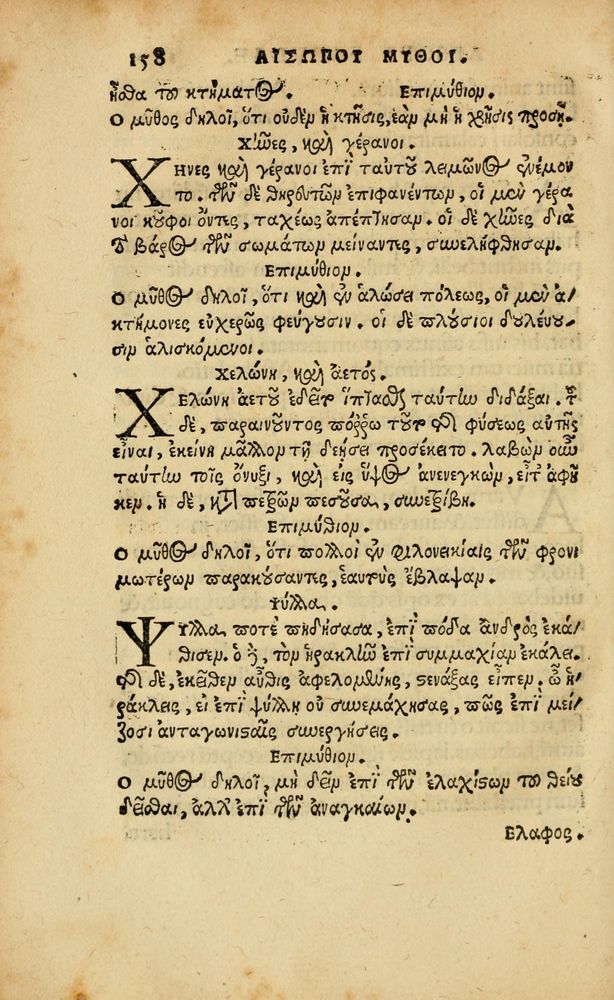 158 ΑΙΣΩΠΟΥ ΜΥΘΟΙ.
ῆσθα τοῦ κτήματος. Επιμύθιον.
Ο μῦθος δηλοῖ, ὅτι οὐδὲν ἡ κτῆσις, ἐὰν μὴ ἡ χρῆσις προσῇ.
Χῆνες, καὶ γέρανοι.
ΧΗΝΕΣ καὶ γέρανοι ἐπὶ ταὐτοῦ λειμῶνος ἐνέμον
το. τῶν δὲ θηρευτῶν ἐπιφανέντων, οἱ μὲν γέρα
νοι κοῦφοι ὄντες, ταχέως ἀπέπτησαν. οἱ δὲ χῆνες διὰ
τὸ βάρος τῶν σωμάτων μείναντες, συνελήφθησαν.
Επιμύθιον.
Ο μῦθος δηλοῖ, ὅτι καὶ ἐν ἁλώσει πόλεως, οἱ μὲν ἀ/
κτήμονες εὐχερῶς φεύγουσιν. οἱ δὲ πλούσιοι δουλεύου/
σιν ἁλισκόμενοι.
Χελώνη, καὶ ἀετός.
ΧΕΛΩΝΗ ἀετοῦ ἐδεῖτο ἵπτασθαι ταύτην διδάξαι. τοῦ
δὲ, παραινοῦντος πόρρω τοῦτο τῆς φύσεως αὐτῆς
εἶναι, ἐκείνη μᾶλλον τῇ δεήσει προσέκειτο. λαβὼν οὖν
ταύτην τοῖς ὄνυξι, καὶ εἰς ὕψος ἀνενεγκὼν, εἶτ' ἀφῆ/
κεν. ἡ δὲ, κατὰ πετρῶν πεσοῦσα, συνετρίβη.
Επιμύθιον.
Ο μῦθος δηλοῖ, ὅτι πολλοὶ ἐν φιλονεικίαις τῶν φρονι
μωτέρων παρακούσαντες, ἑαυτοὺς ἔβλαψαν.
Ψύλλα.
ΨΥΛΛΑ ποτὲ πηδήσασα, ἐπὶ πόδα ἀνδρὸς ἐκά/
θισεν. ὁ δὲ, τὸν ἡρακλῆν ἐπὶ συμμαχίαν ἐκάλει.
τῆς δὲ, ἐκεῖθεν αὖθις ἀφελομένης, στενάξας εἶπεν. ὦ ἡ/
ράκλεις, εἰ ἐπὶ ψύλλῃ οὐ συνεμάχησας, πῶς ἐπὶ μεί/
ζοσι ἀνταγωνισταῖς συνεργήσεις.
Επιμύθιον.
Ο μῦθος δηλοῖ, μὴ δεῖν ἐπὶ τῶν ἐλαχίστων τοῦ θείου
δεῖσθαι, ἀλλ' ἐπὶ τῶν ἀναγκαίων.
Ελαφος.